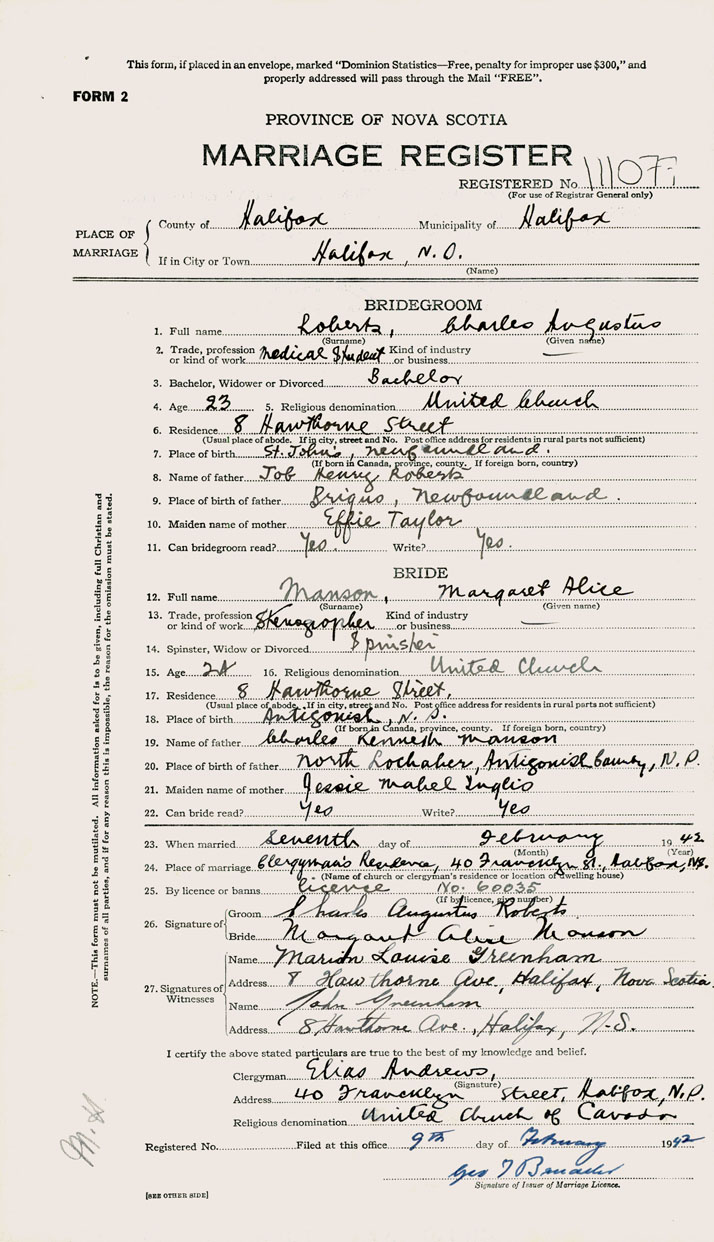 This form, if placed in an envelope, marked “Dominion Statistics—Free, penalty for improper use $300,” and
properly addressed will pass through the Mail “FREE”.
FORM 2
PROVINCE OF NOVA SCOTIA
MARRIAGE REGISTER
REGISTERED No.
(For use of Registrar General only)
PLACE OF MARRIAGE
County of Halifax Municipality of Halifax
If in City or Town Halifax, N.S.
(Name)
BRIDEGROOM
1. Full name Roberts, Charles Augustus
(Surname) (Given name)
2. Trade, profession or kind of work Medical Student Kind of industry or business
3. Bachelor, Widower or Divorced Bachelor
4. Age 23 5. Religious denomination United Church
6. Residence 8 Hawthorne Street
(Usual place of abode. If in city, street and No. Post office address for residents in rural parts not sufficient)
7. Place of birth St. John's, Newfoundland.
(If born in Canada, province, county. If foreign born, country)
8. Name of father Job Henry Roberts
9. Place of birth of father Brigus, Newfoundland.
10. Maiden name of mother Effie Taylor
11. Can bridegroom read? Yes. Write? Yes.
BRIDE
12. Full name Manson, Margaret Alice
(Surname) (Given name)
13. Trade, profession or kind of work Stenographer Kind of industry or business
14. Spinster, Widow or Divorced Spinster
15. Age 24 16. Religious denomination United Church
17. Residence 8 Hawthorne Street,
(Usual place of abode. If in city, street and No. Post office address for residents in rural parts not sufficient)
18. Place of birth Antigonish, N.S.
(If born in Canada, province, county. If foreign born, country)
19. Name of father Charles Kenneth Manson
20. Place of birth of father North Lochaber, Antigonish County, N.S.
21. Maiden name of mother Jessie Mabel Inglis
22. Can bride read? Yes Write? Yes
23. When married Seventh day of February 1942
(Month) (Year)
24. Place of marriage Clergyman's Residence, 40 Francklyn St., Halifax, N.S.
(Name of church or clergyman's residence or location of dwelling house)
25. By licence or banns licence No. 60035
(If by licence, give number)
26. Signature of
Groom Charles Augustus Roberts
Bride Margaret Alice Manson
27. Signatures of Witnesses
Name Marion Louise Greenham
Address 8 Hawthorne Ave, Halifax, Nova Scotia.
Name John Greenham
Address 8 Hawthorne Ave., Halifax, N-S.
I certify the above stated particulars are true to the best of my knowledge and belief.
Clergyman Elias Andrews,
(Signature)
Address 40 Francklyn Street, Halifax, N.S.
Religious denomination United Church of Canada
Registered No. Filed at this office 9th day of February 1942
Geo
Signature of Issuer of Marriage Licence.
[SEE OTHER SIDE]
NOTE.—This form must not be mutilated. All information asked for is to be given, including full Christian and
surnames of all parties, and if for any reason this is impossible, the reason for the omission must be stated.